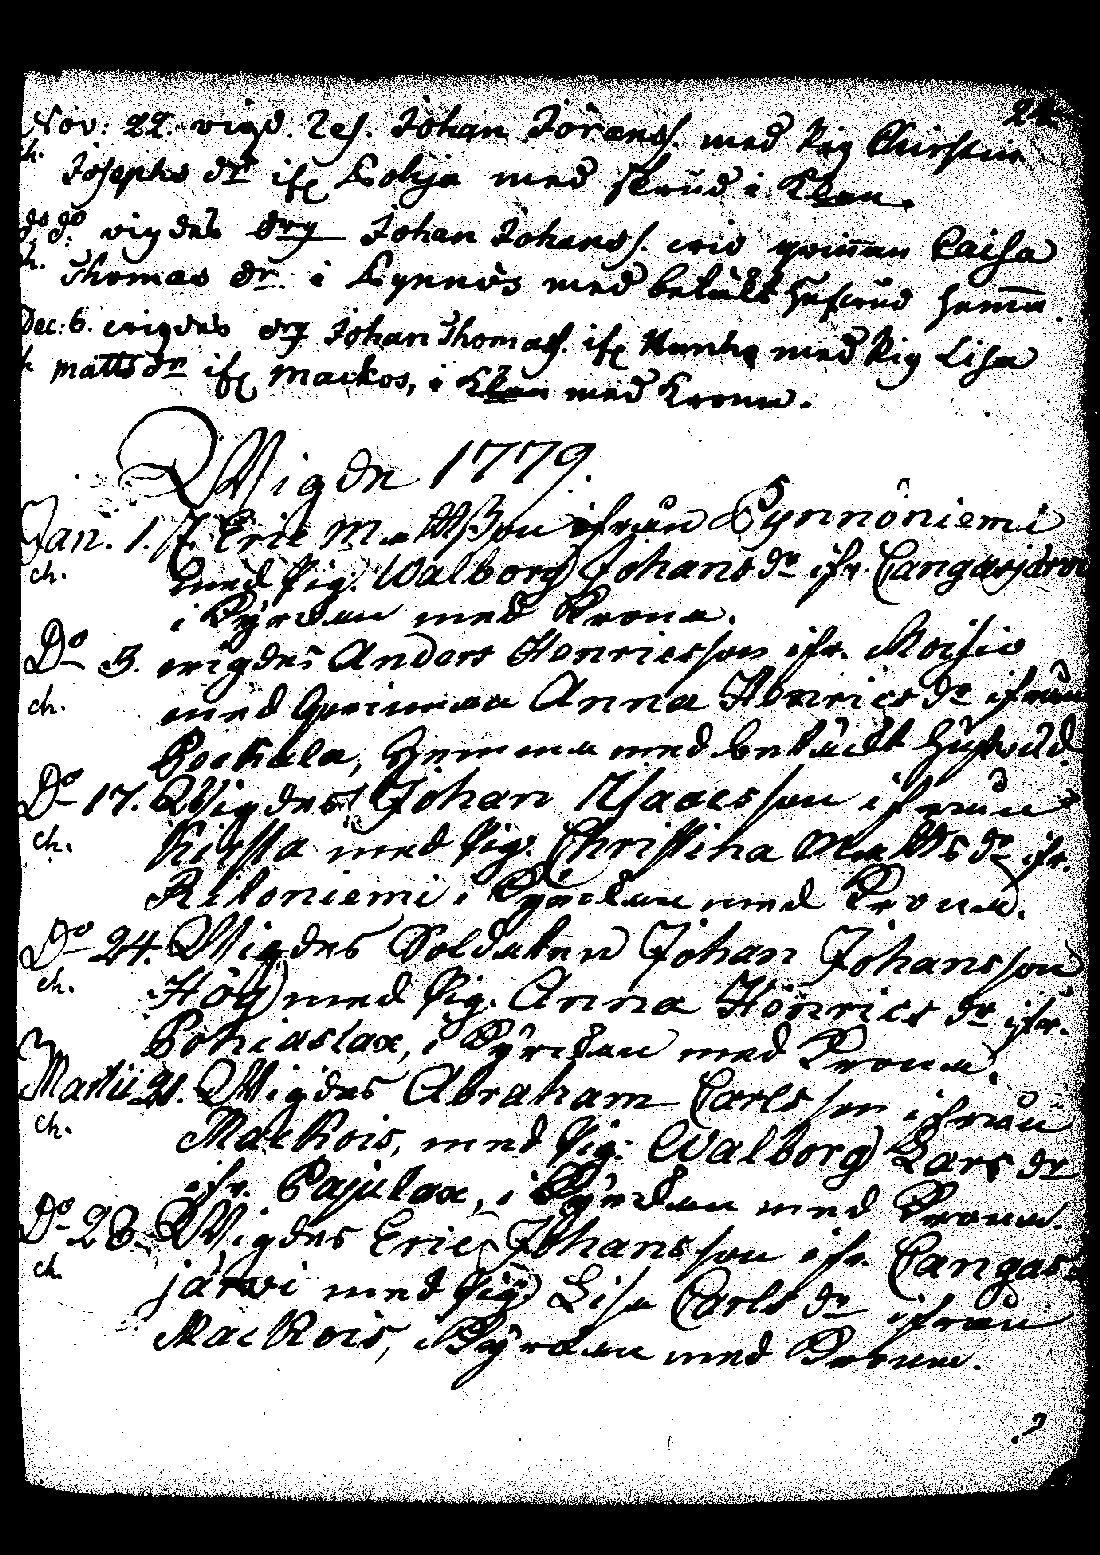 24.
Nov: 22. vigd. Johan Jöranss. med Pig Christin
ch. Josephs dr ifr Lohja med skrud i
do do vigdes drg Johan Johanss. wid qwinnan Caisa
h. Thomas dr. i Lynnös med betäkt hufwud hemma.
Dec: 6. wigdes drg Johan Thomass. ifr med Pig Lisa
h matts dr ifr Mackos, i med Krona.
Wigde 1779.
Jan. 1. Eric Mattsson ifrån Lynnöniemi
ch. med Pig. Walborg Johans dr ifr. Cangasjärvi
i Kyrckan med Krona.
Do 3. wigdes Anders Henricsson ifr. Moisio
ch. med Qwinnan Anna Henrics dr ifrån
Bockala, Hemma med betäckt hufwud.
Do 17. Wigdes Johan Isaacsson ifrån
ch. Kirsta med Pig. Christina Matts dr ifr.
Riloniemi i Kyrckan med Krona.
Do 24. Wigdes Soldaten Johan Johansson
ch. Hög med Pig. Anna Henrics dr ifr.
Pohiaslax, i Kyrckan med Krona.
Martii 21. Wigdes Abraham Carlsson ifrån
ch. MacKois, med Pig: Walborg Lars dr
ifr. Pajulax, i Kyrckan med Krona.
Do 28. Wigdes Eric Johansson ifr. Cangas
ch. järwi med Pig. Lisa Carls dr ifrån
MacKois, i Kyrckan med Krona.